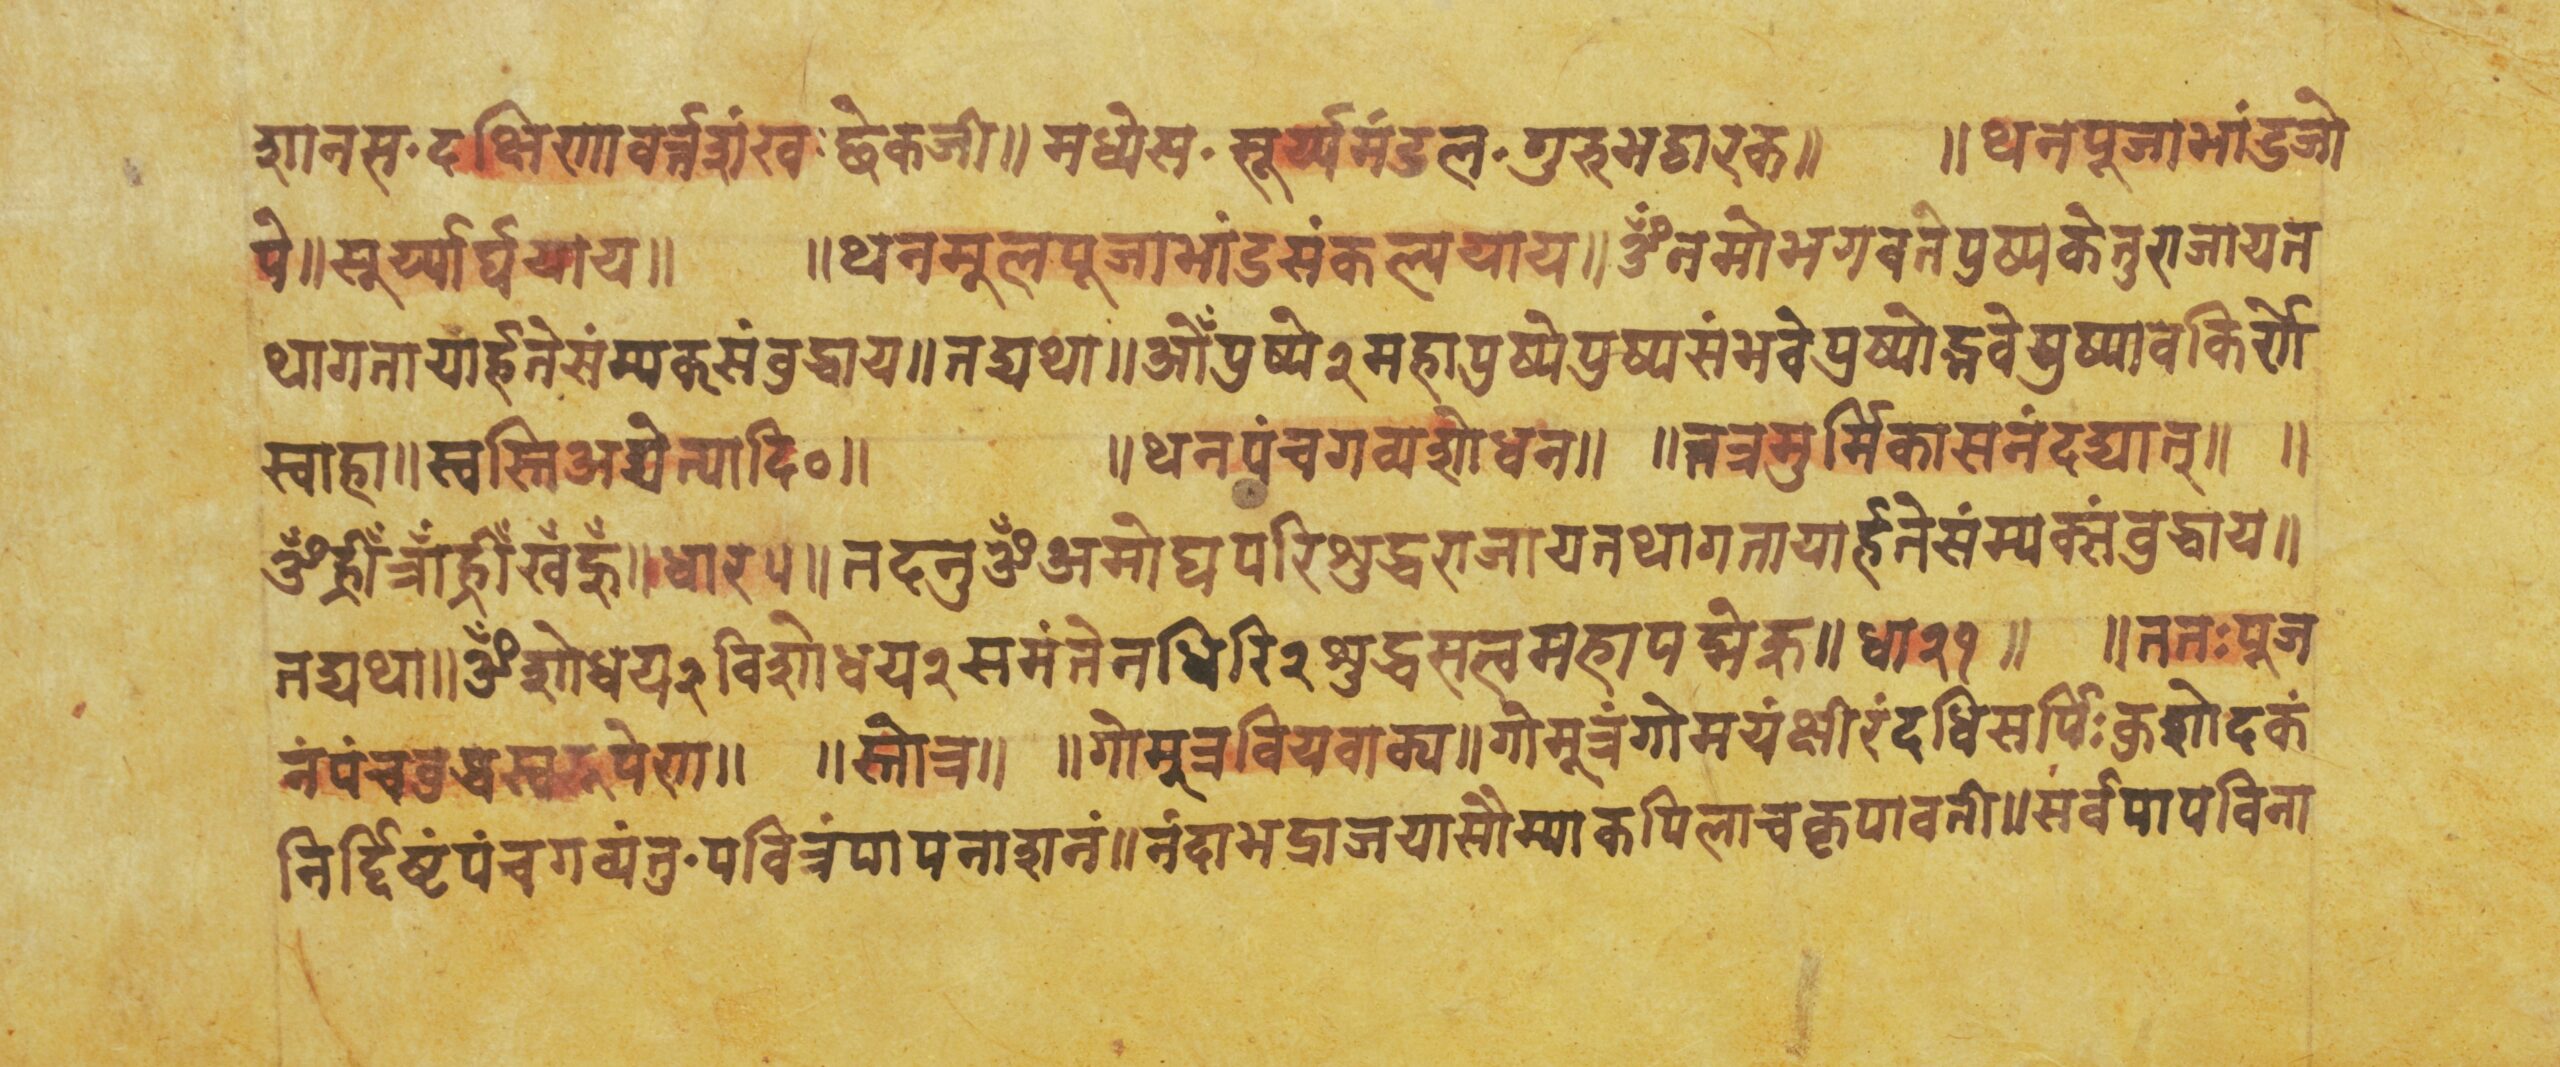 शानस॰दक्षिणावर्त्तशंखःछेकजी॥मध्येस॰सूर्य्यमंडल॰गुरुभट्टारक॥ ॥थनपूजाभांडजो
पे॥सूर्य्यार्घयाय॥ ॥थनमुलपूजाभांडसंकल्पयाय॥ॐनमोभगवतेपुष्पकेतुराजायत
थागतायार्हतेसंम्यक्संवुद्धाय॥तद्यथा॥ओँपुष्पे२महापुष्पेपुष्पसंभवेपुष्पोद्भवेपुष्पावकिर्णे
स्वाहा॥स्वस्तिअद्येत्यादि०॥ ॥थनपंचगव्यशोधन॥ ॥तत्रमुर्मिकासनंदद्यात्॥ ॥
ॐह्रीँत्राँह्रीँखँहूँ॥धार५॥तदनुॐअमोघपरिशुद्धराजायतथागतायार्हतेसंम्यक्संवुद्धाय॥
तद्यथा॥ॐशोधय२विशोधय२समंतेनधिरि२शुद्धसत्वमहापद्मेहूं॥धा२१॥ ॥ततःपूज
नंपंचवुद्धस्वरूपेण॥ ॥स्तोत्र॥ ॥गोमुत्रवियवाक्य॥गोमूत्रंगोमयंक्षीरंदधिसर्पिःकुशोदकं
निर्द्दिष्टंपंचगव्यंतु॰पवित्रंपापनाशनं॥नंदाभद्राजयासौम्याकपिलाचकृपावती॥सर्वपापविना